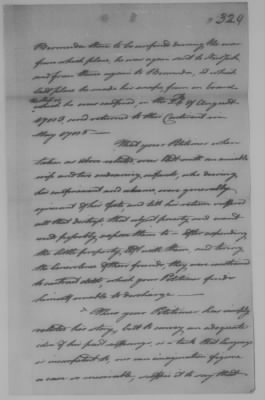 324
Bermuda there to be confined during the war
from which place, he was again sent to New York
and from there again to Bermuda, at which
last place he made his escape, from on board
which he was confined, on the of August
and returned to this Continent in
May
That your Petitioner when
taken as above related, was Blest with an amiable
wife and two endearing infants, who during
his confinement and absence, were generally
ignorant of his fate, and till his return suffered
all that distress, that abject poverty and want
could possibly expose them to — After expending
the little property, left with them, and tiring
the benevolence of their friends, they were constrained
to contract debts, which your Petitioner finds
himself unable to discharge —
Thus your Petitioner has simply
related his story, but to convey an adequate
idea of his past sufferings, is a task that language
is incompetent to, nor can imagination figure
a case so miserably, suffice it to say that